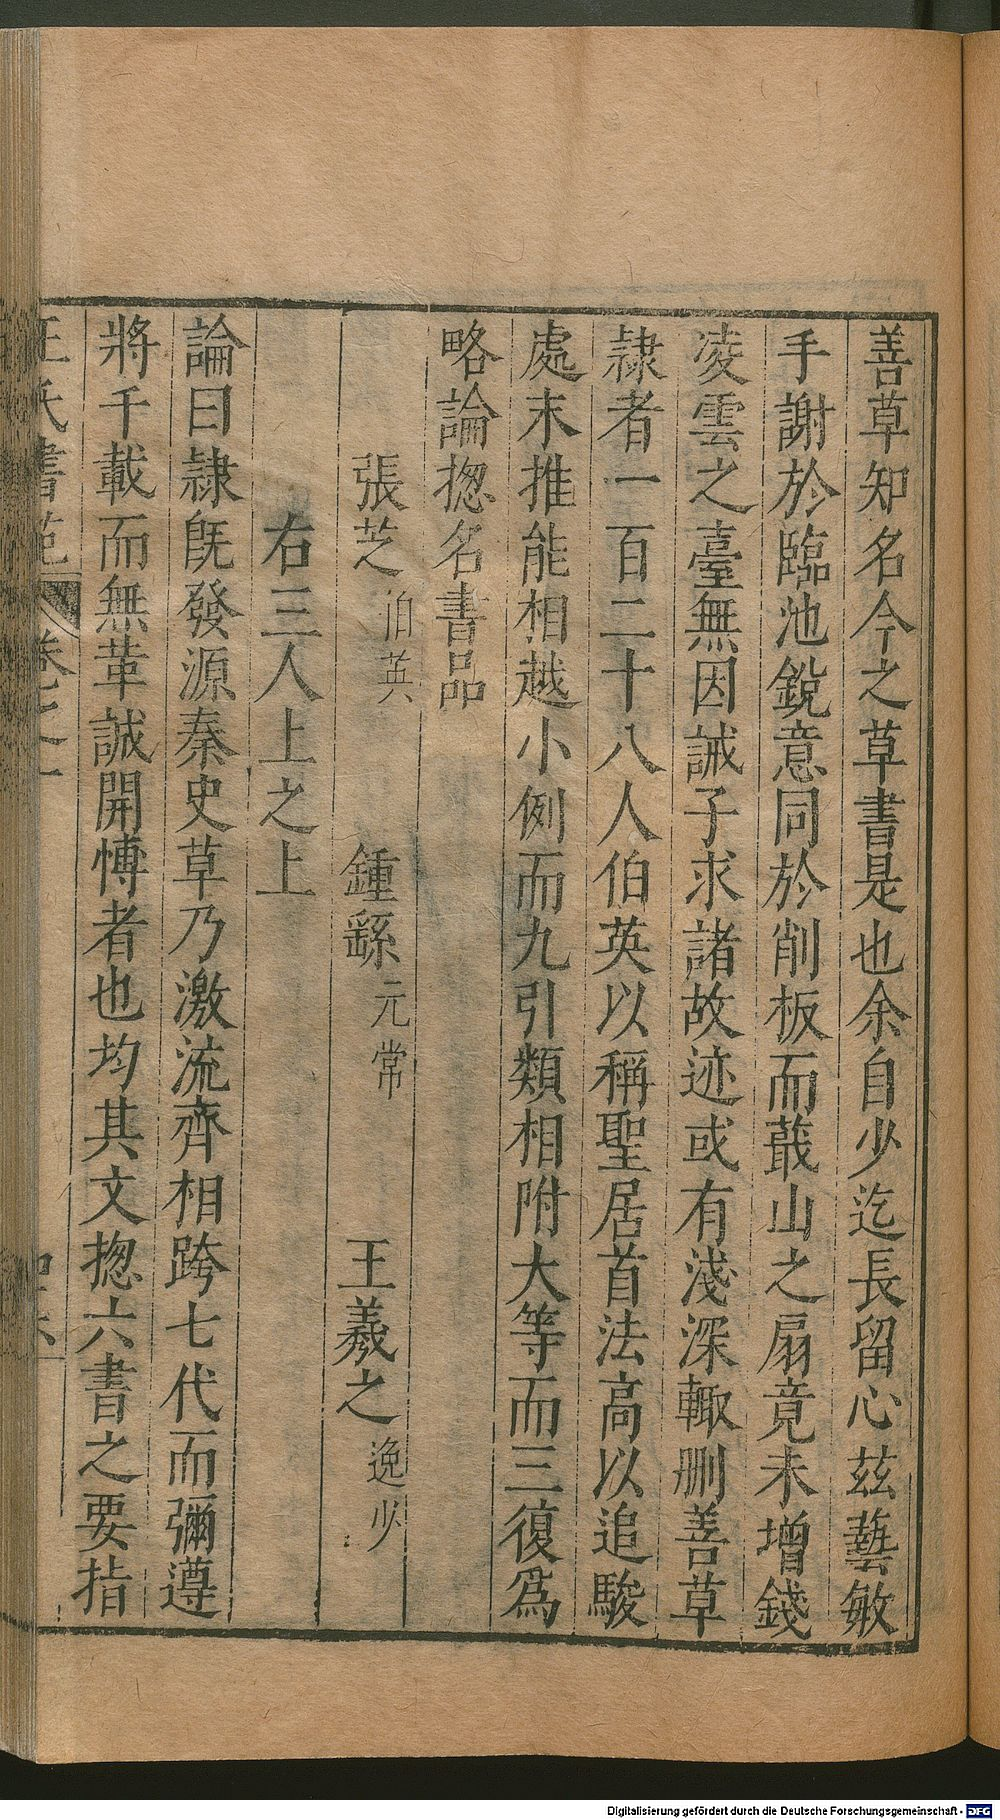 善草知名今之草書是也余自少迄長留心茲藝敏
手謝於臨池銳意同於削板而蕺山之扇竟未增錢
凌雲之臺無因誡子求諸故迹或有淺深輙刪善草
隷者一百二十八人伯英以稱聖居首法高以追駿
處末推能相越小例而九引類相附大等而三復為
略論揔名書品
張芝 伯英 鍾繇 元常 王羲之 逸少
右三人上之上
論曰隷旣發源秦史草乃激流齊相跨七代而彌遵
將千載而無革誠開博者也均其文揔六書之要指
王氏書苑 卷之一
Digitalisierung gefördert durch die Deutsche Forschungsgemeinschaft - DFG